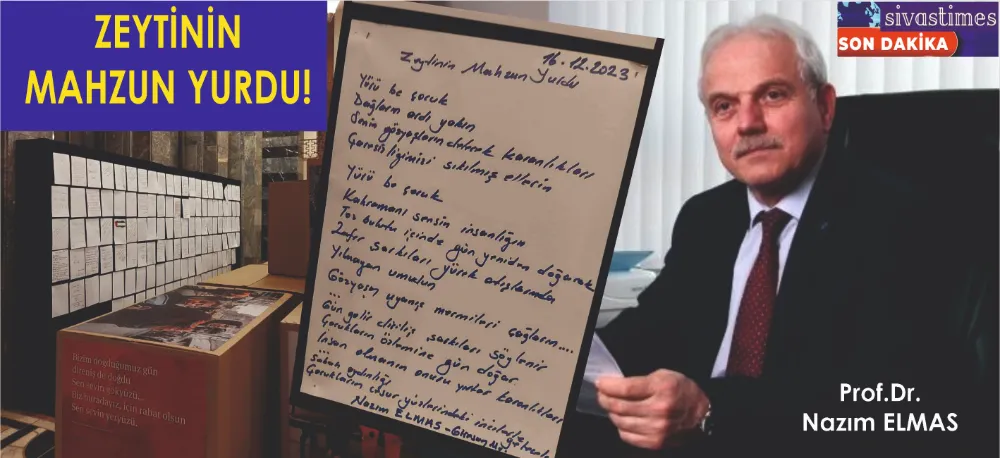 ZEYTİNİN
MAHZUN YURDU!
sivastimes
SON DAKİKA
16.12.2023
Zeytinin Mahzun Yurdu
Yürü be çocuk
Dağların ardı yakın
Senin gözyaşların delecek karanlıkları
Çaresizliğimizi sıkılmış ellerin
Yürü be çocuk
Kahramanı sensin insanlığın
Toz bulutu içinde gün yeniden doğacak
Zafer şarkıları yürek atışlarından
Yılmayan umudun
Gözyaşın uyanış mermileri çağların....
...
Gün gelir diriliş şarkıları söylenir
Çocukların özlemine gün doğar
İnsan olmanın onuru yırtar karanlıkları
Sabah aydınlığı
Çocukların cesur yüzlerindeki
Nazım ELMAS -
Bizim doğduğumuz gün
direniş de doğdu
Sen sevin gökyüzü...
biz buradayız, için rahat olsun
Sen sevin yeryüzü.
Prof.Dr.
Nazım ELMAS